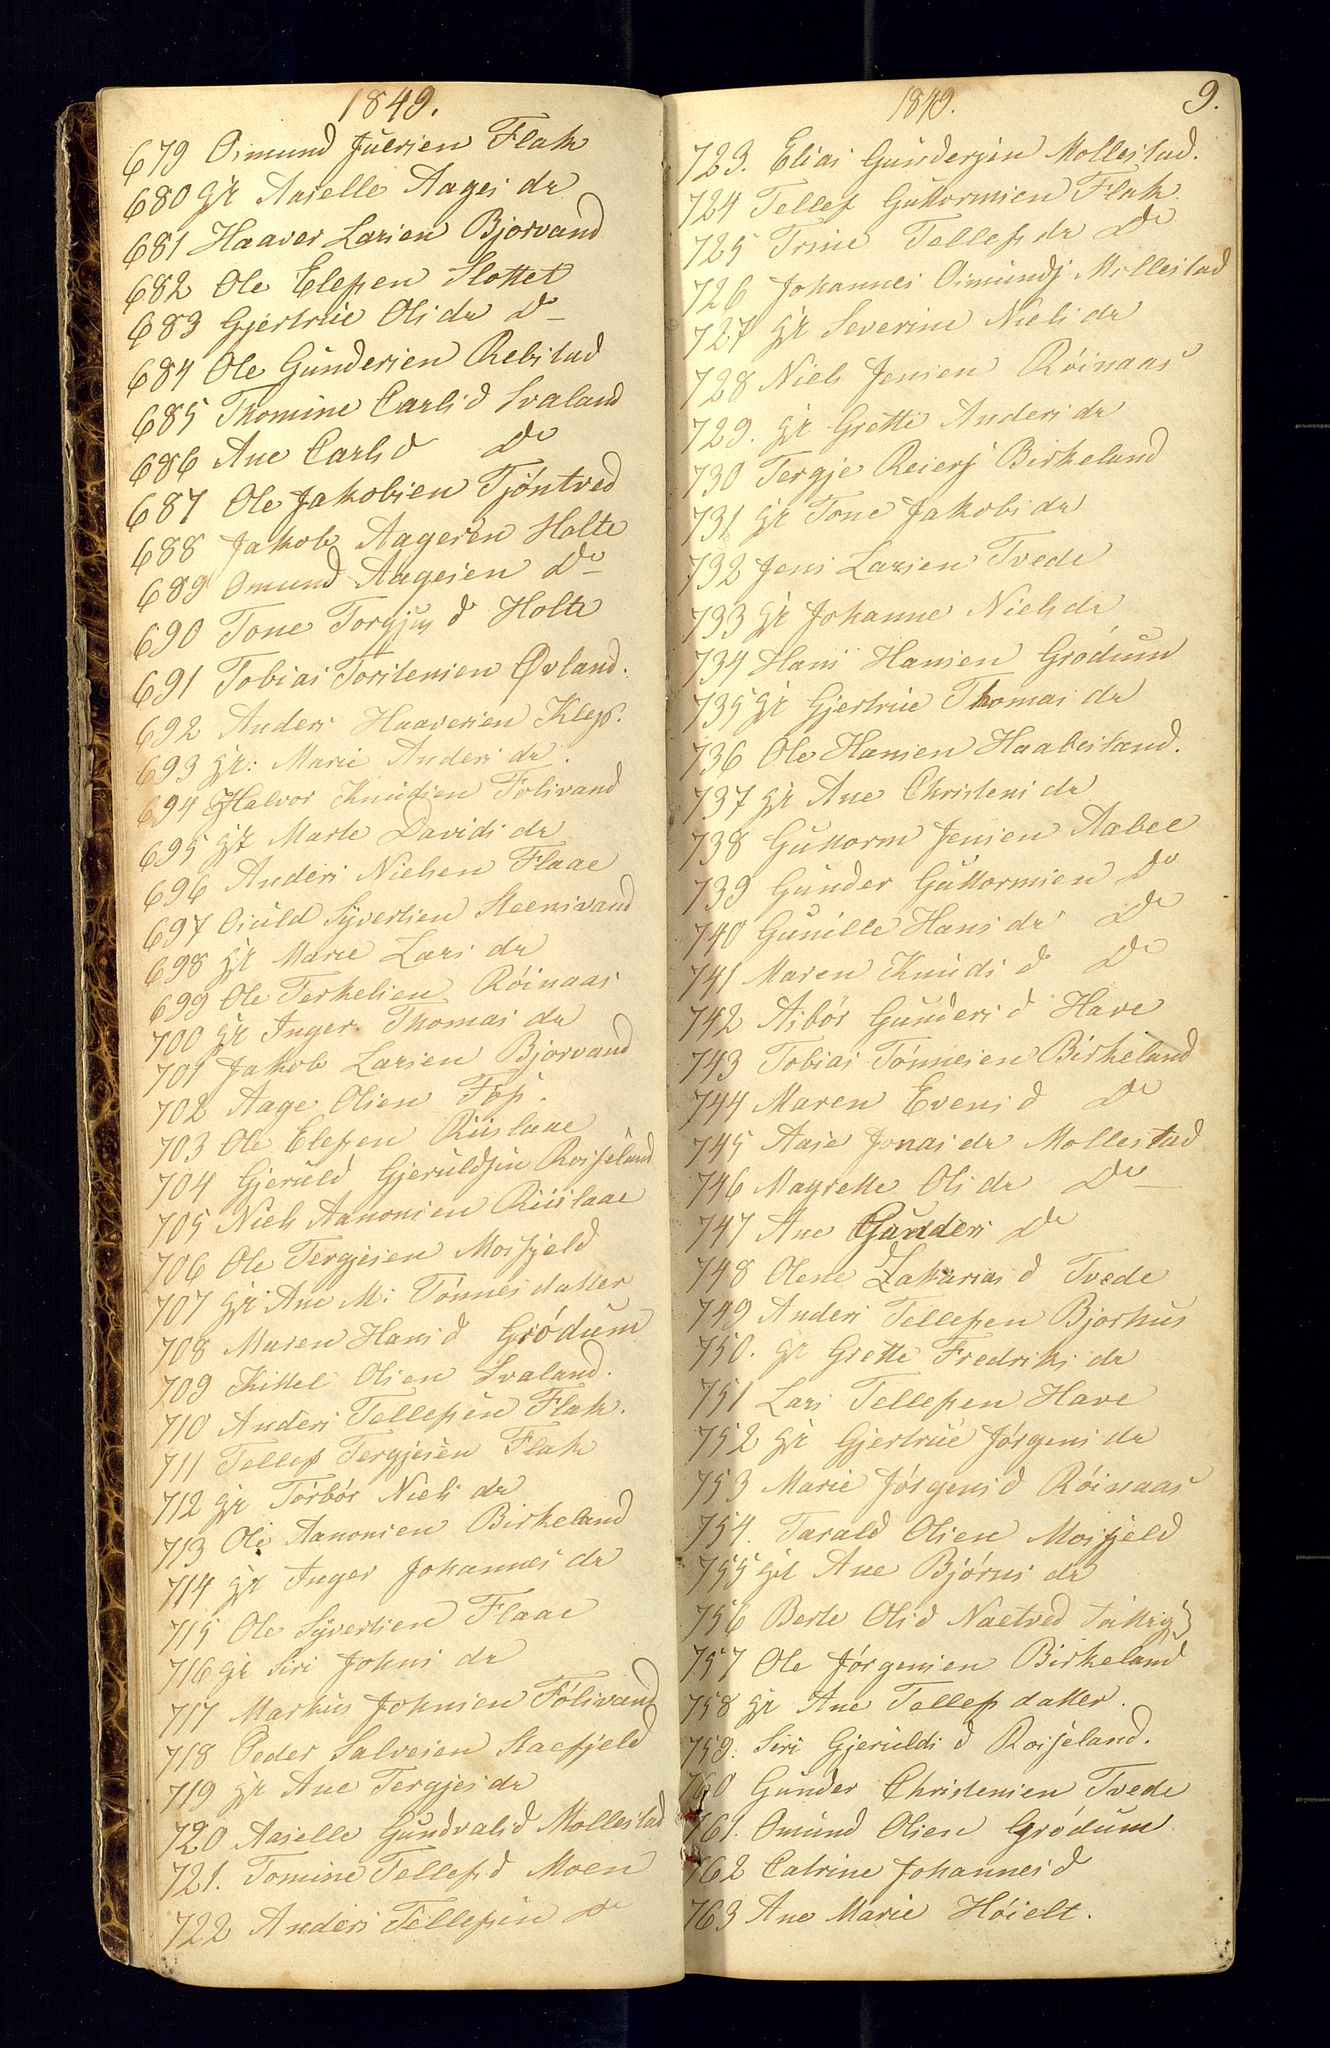 1849.
679 Osmund Juersen Flak
680 gr Aaselle Aages dr
681 Haaver Larsen Bjorvand
682 Ole Elefsen Slottet
683 Gjertrue Olsdr Do
684 Ole Gundersen Rebstad
685 Thomine Carlsd Svaland
686 Ane Carlsd Do
687 Ole Jakobsen Tjöntved
688 Jakob Aagesen Holte
689 Omund Aagesen Do
690 Tone Torgjus d Holte
691 Tobias Torstensen Øvland.
692 Anders Haaversen Klep.
693 gr: Marie Anders dr.
694 Halvor Knudsen Folivand
695 gr Marte Davids dr
696 Anders Nielsen Flaae
697 Osuld Syvertsen Steensvand
698 gr Marie Lars dr
699 Ole Terkelsen Röinaas
700 gr Inger Thomas dr
701 Jakob Larsen Bjorvand
702 Aage Olsen Fos.
703 Ole Elefsen Riislaae
704 Gjeruld Gjeruldsen Rosseland
705 Niels Aanonsen Riislaae
706 Ole Tergjesen Mosfjeld
707 gr Ane M: Tönnesdatter
708 Maren Hansd Grödum
709 Kittel Olsen Svaland.
710 Anders Tellefsen Flak.
711 Tellef Tergjesen Flak
712 gr Törbör Niels dr
713 Ole Aanonsen Birkeland
714 gr Inger Johannes dr
715 Ole Syvertsen Flaae
716 gr Siri Johns dr
717 Markus Johnsen Fölivand
718 Peder Salvesen Staefjeld
719 gr Ane Tergjes dr
720 Aaselle Gundvalsd Mollestad
721. Tomine Tellefsd Moen
722 Anders Tellefsen Do
1849. 9.
723. Elias Gundersen Mollestad.
724 Tellef Guttormsen Flak.
725 Trine Tellefs dr Do
726 Johannes Osmunds Mollestad
727 gr Severine Niels dr
728 Niels Jensen Röinaas
729. gr Grette Anders dr
730 Tergje Reiers Birkeland
731 gr Tone Jakobs dr
732 Jens Larsen Tvede
733 gr Johanne Nielsdr
734 Hans Hansen Grödum
735 gr Gjertrue Thomas dr
736 Ole Hansen Haabesland.
737 gr Ane Christens dr
738 Guttorm Jensen Aabel
739 Gunder Guttormsen Do
740 Gunille Hans dr Do
741 Maren Knuds d Do
742 Asbör Gunders d Have
743 Tobias Tönnesen Birkeland
744 Maren Evens d Do
745 Aase Jonas dr Mollestad
746 Magrette Ols dr Do
747 Ane Gunders Do
748 Olene Zakarias d Tvede
749 Anders Tellefsen Bjorhus
750. gr Grette Fredriks dr
751 Lars Tellefsen Have
752 gr Gjertrue Jörgens dr
753 Marie Jörgensd Röinaas
754. Tarald Olsen Mosfjeld
755 gr Ane Björns dr
756 Berte Olsd Naetved
757 Ole Jörgensen Birkeland
758 gr Ane Tellefs datter.
759. Siri Gjerulds d Rosseland.
760 Gunder Christensen Tvede
761. Omund Olsen Grödum
762 Catrine Johannesd
763 Ane Marie Höielt.